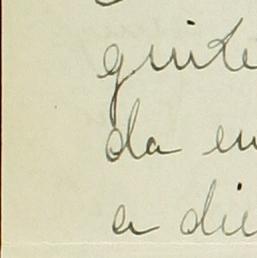 quite
da en
a die